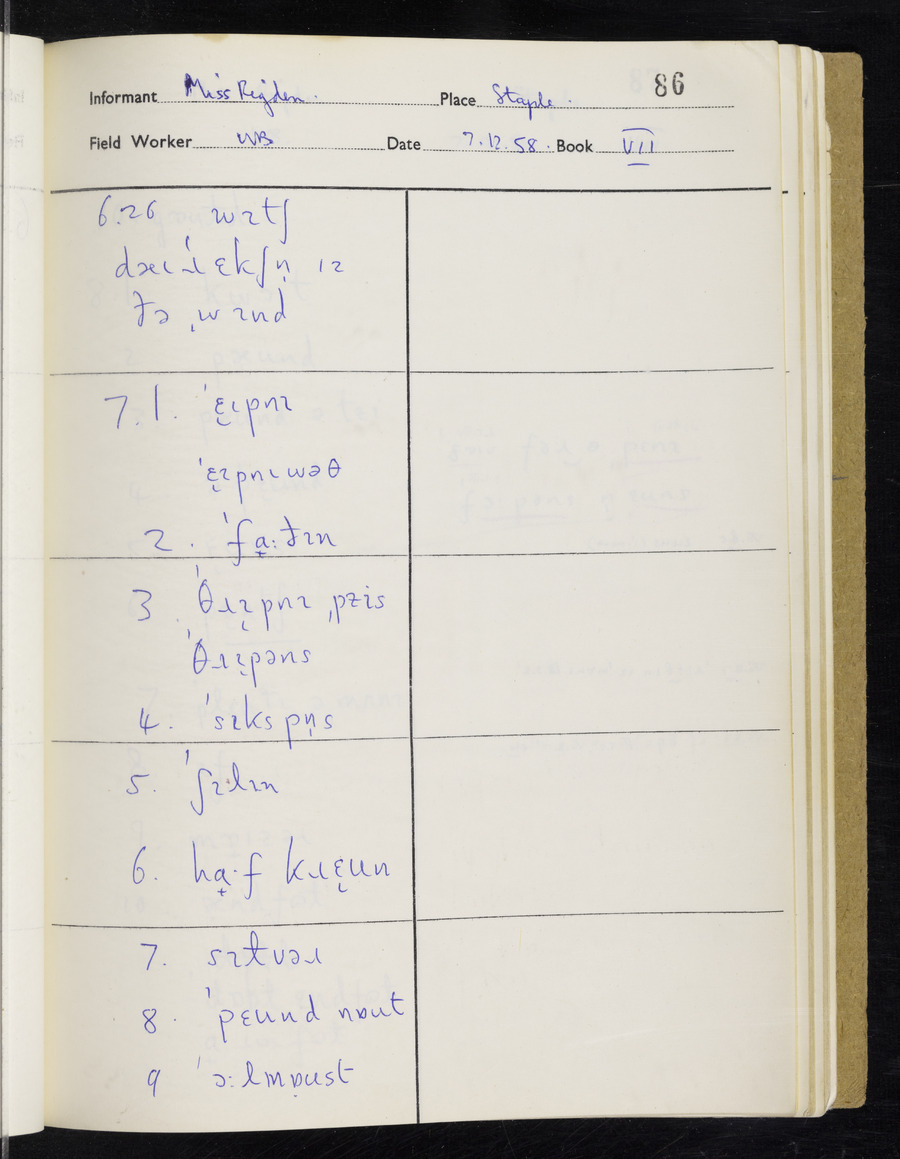 86
Informant Miss Rigden. Place Staple.
Field Worker WB Date 7.12.58. Book VII
6.26 wɪtʃ
dəɩˈɹɛkʃn̩ ɪz
ðə ˌwɪnd
7.1. ˈɛ̞ɩpnɪ
ˈɛ̞ɪpnɩwəθ
2. ˈfa̟:ðɪn
3. ˈθɹɛ̞pnɪ ˌpɪis
ˈθɹɛ̞pəns
4. ˈsɪkspn̩s
5. ˈʃɪlɪn
6. ha̟·f kɹɛ̞un
7. sɪɫvəɹ
8. ˈpɛund nɒut
9 ˈɔ:lmɒust